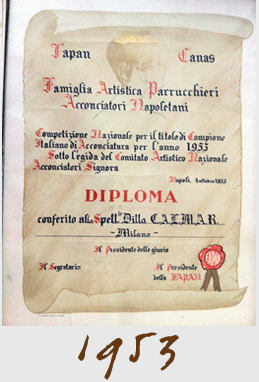 Fapan Canas
Famiglia Artistica Parrucchieri
Acconciatori Napoletani
Competizione Nazionale per il titolo di Campione
Italiano di Acconciatura per l'anno 1953
Sotto l'egida del Comitato Artistico Nazionale
Acconciatori Signora
Napoli, 4 ottobre 1953
DIPLOMA
conferito alla Spett. Ditta CALMAR
~Milano~
Il Presidente della giuria
Il Segretario Il Presidente
della FAPAN
1953